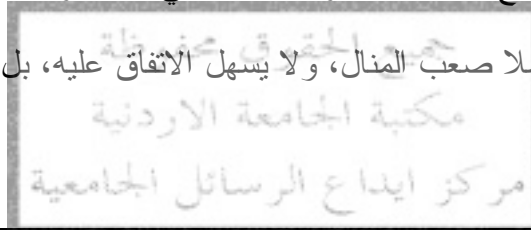 جميع الحقوق محفوظة
صعب المنال، ولا يسهل الاتفاق عليه، بل
مكتبة الجامعة الاردنية
مركز ايداع الرسائل الجامعية